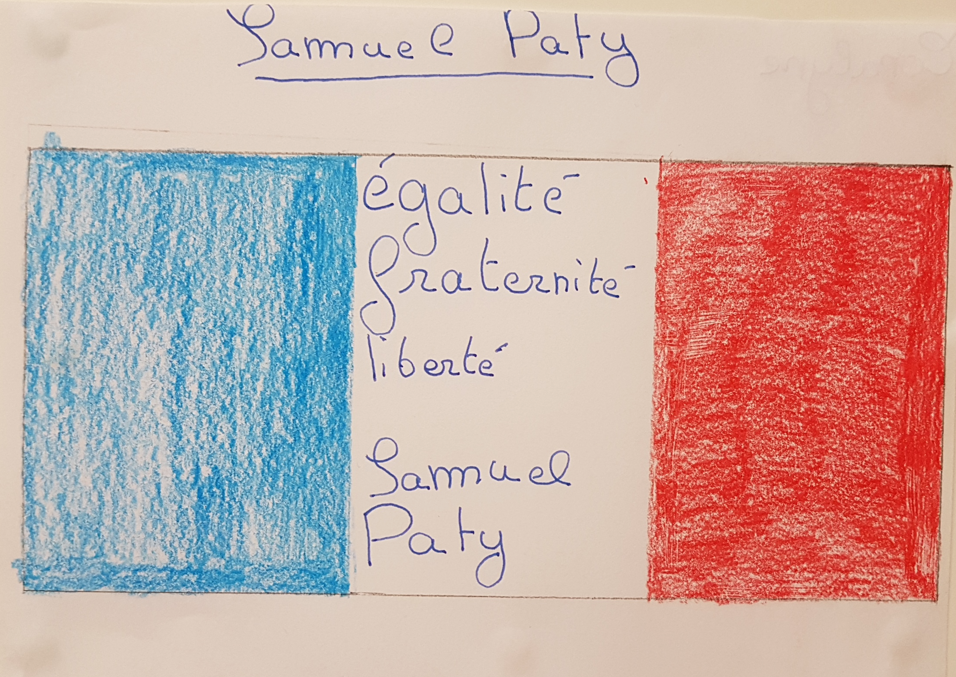 Samuel Paty
égalité
fraternité
liberté
Samuel
Paty